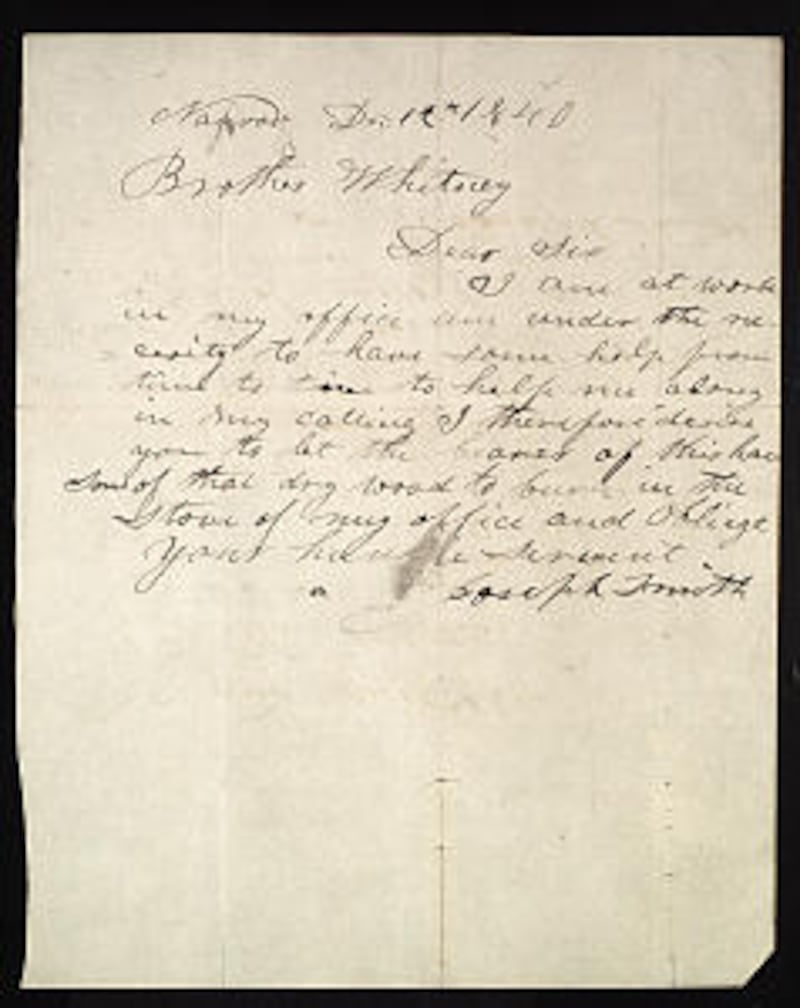 Dec. 12th 1840
Brother Whitney
Dear Sir
I am at work
in my office am under the ne
cesity to have some help from
time to time to help me along
in my calling I therefore desire
you to let the bearer of this have
some of that dry wood to burn in the
Stove of my office and Obliege
your humble Servent
Joseph Smith